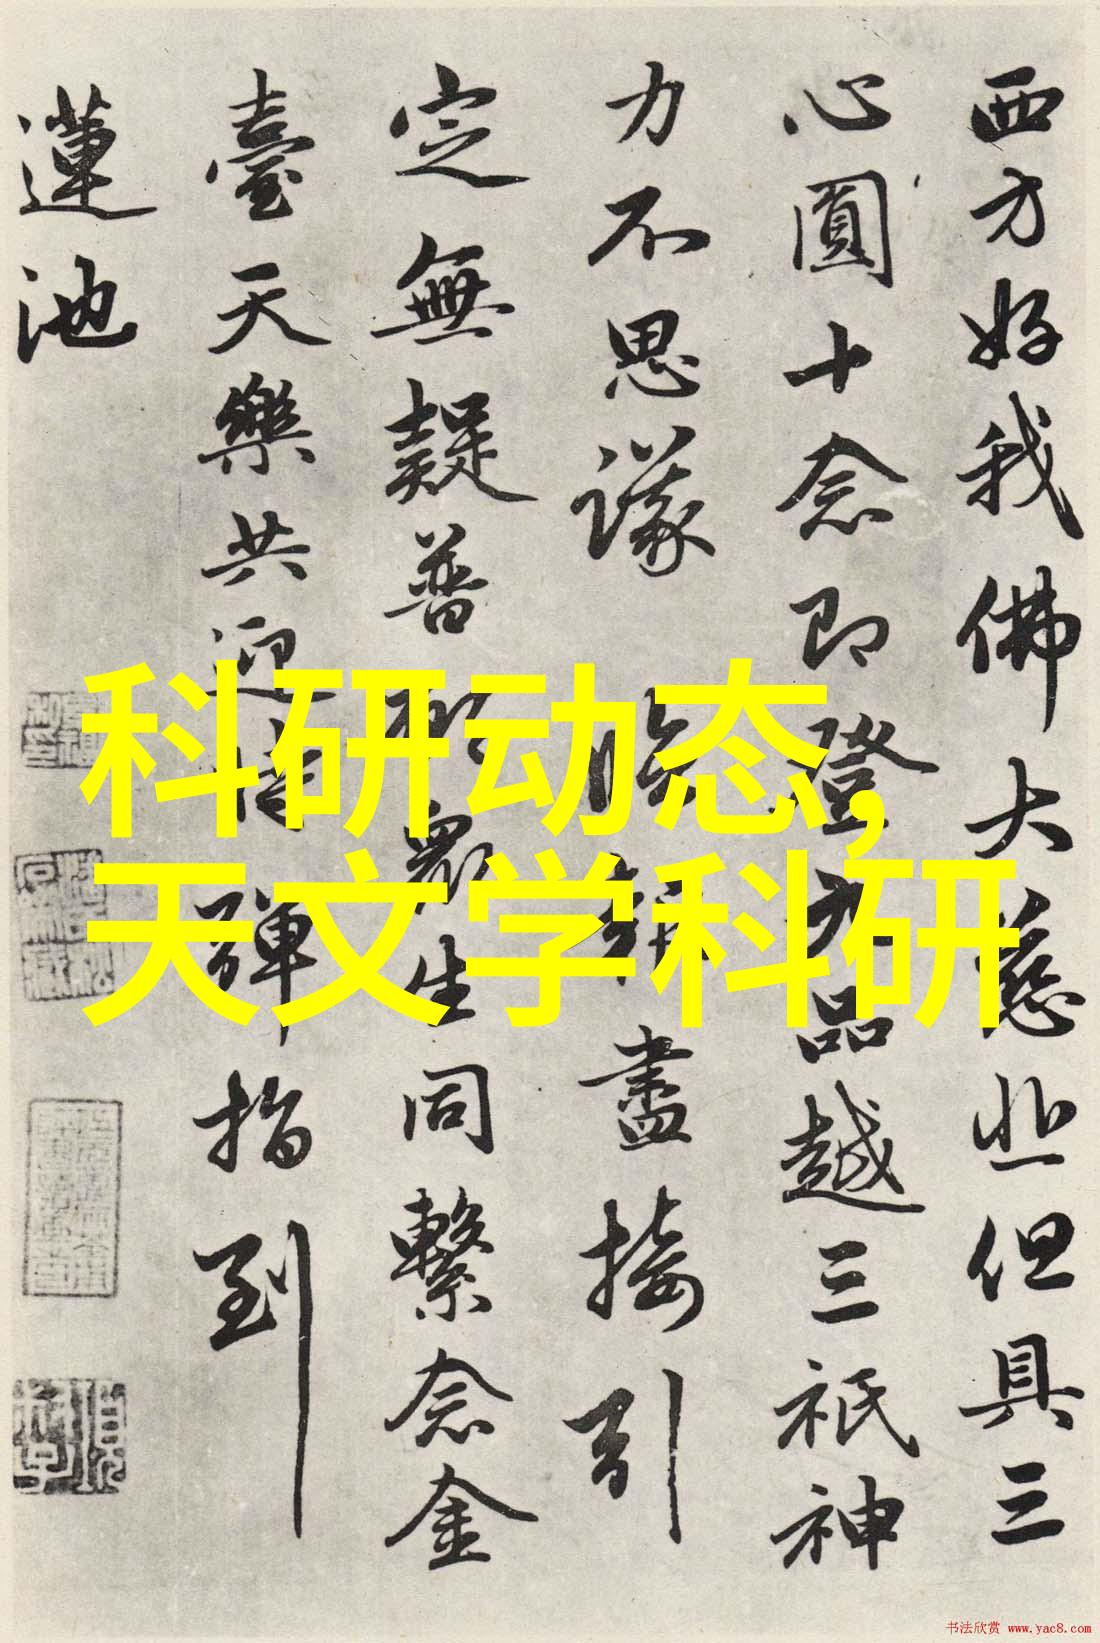 西方好我佛大慈悲但具三
心圓十念即登九品越三祇神
力不思議臨盡接引
定無疑普願眾生同繫念金
臺天樂共迎彈指到
蓮池
科研动态,
天文学科研
书法欣赏 www.yac8.com